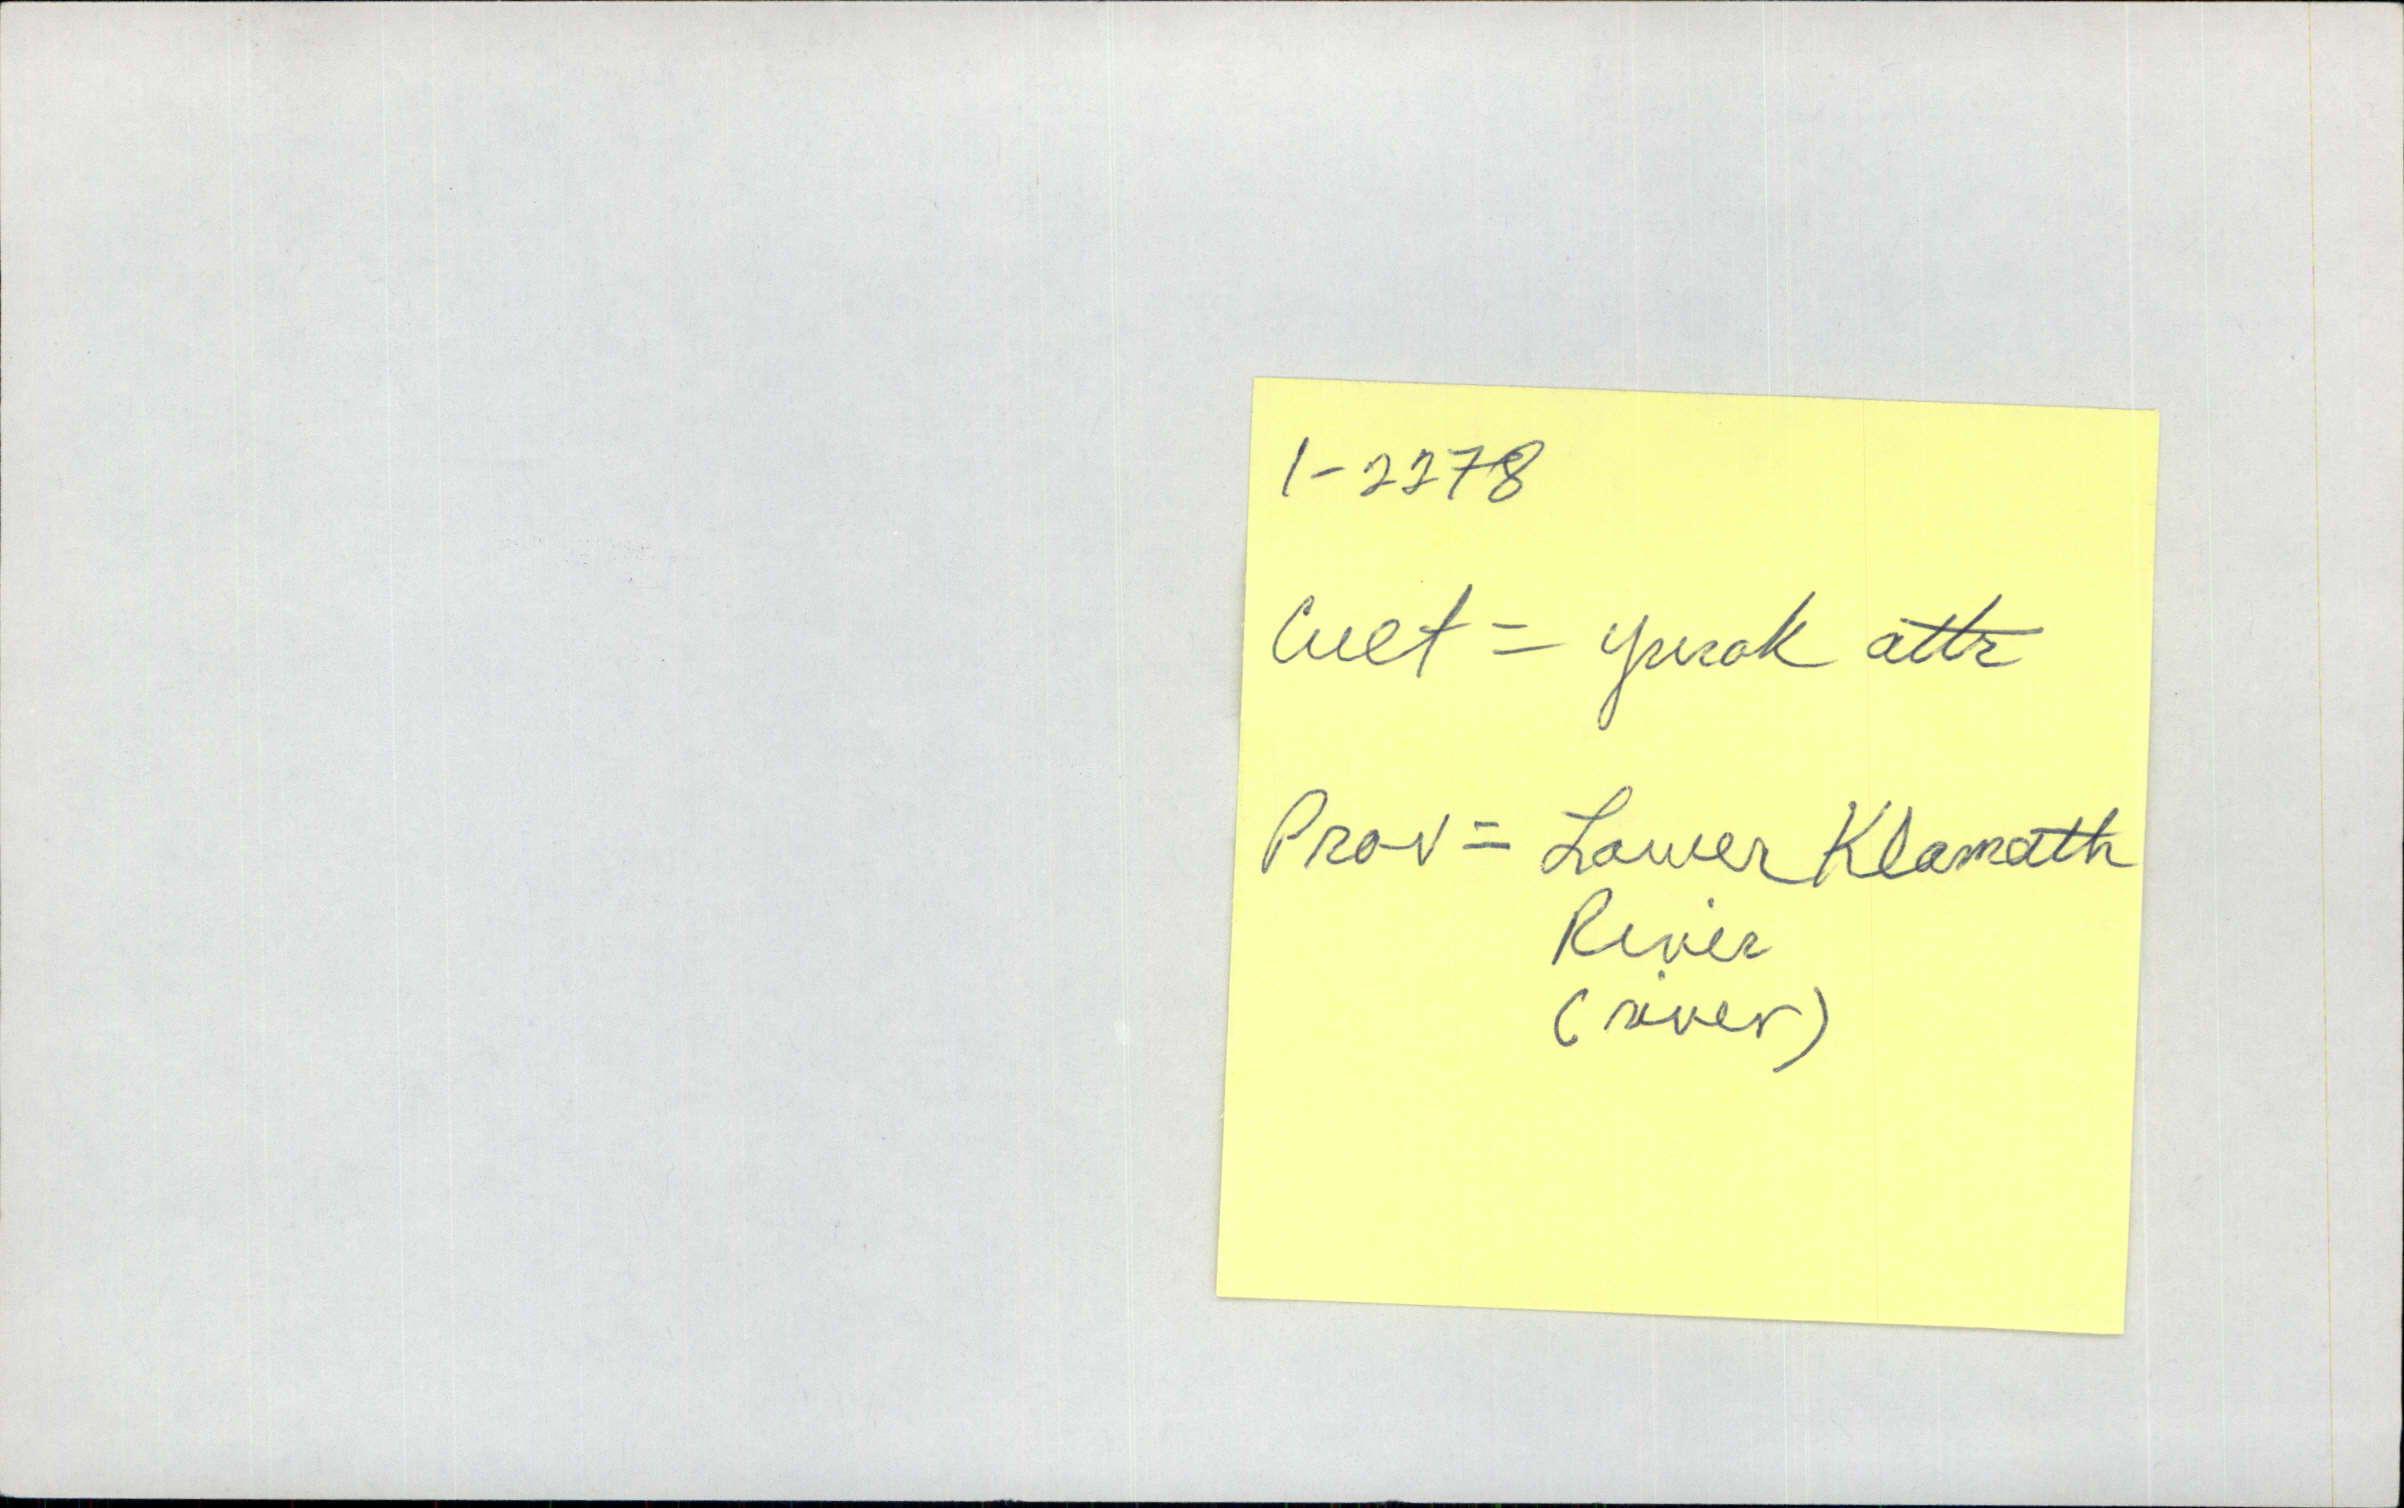 1-2278
Cult = Yurok attr
Prov = Lower Klamath
River
(river)